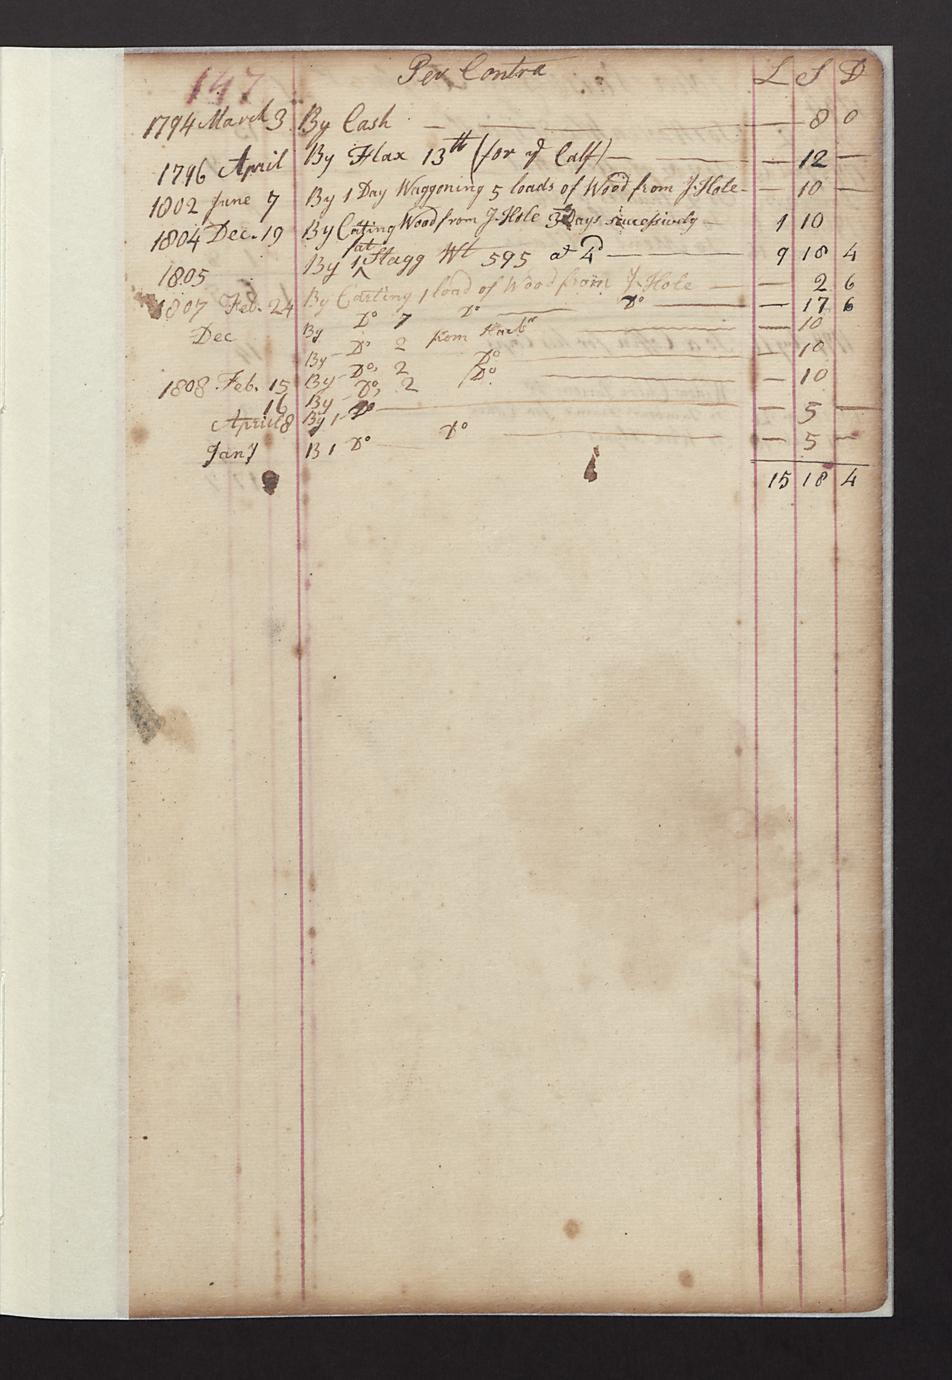 147 Per Contra L S D
1794 March 3 By Cash — — — 8 0
1796 April By Flax 13th (for ye Calf) — — 12 —
1802 June 7 By 1 Day Waggoning 5 loads of Wood from J. Hole — — 10 —
1804 Dec. 19 By Carting Wood from J. Hole 3 Days successively — 1 10
1805 By 1 fat Stagg Wt 595 at 4d — 9 18 4
By Carting 1 load of Wood from J. Hole — — 2 6
1807 Feb. 24 By Do 7 Do — Do — — 17 6
Dec By Do 2 from — — 10
By Do 2 Do — — 10
1808 Feb. 15 By Do, 2 Do — — 10
16 By Do, 2
April 8 By 1 Do — — 5 —
Jany B 1 Do Do — — 5 —
15 18 4